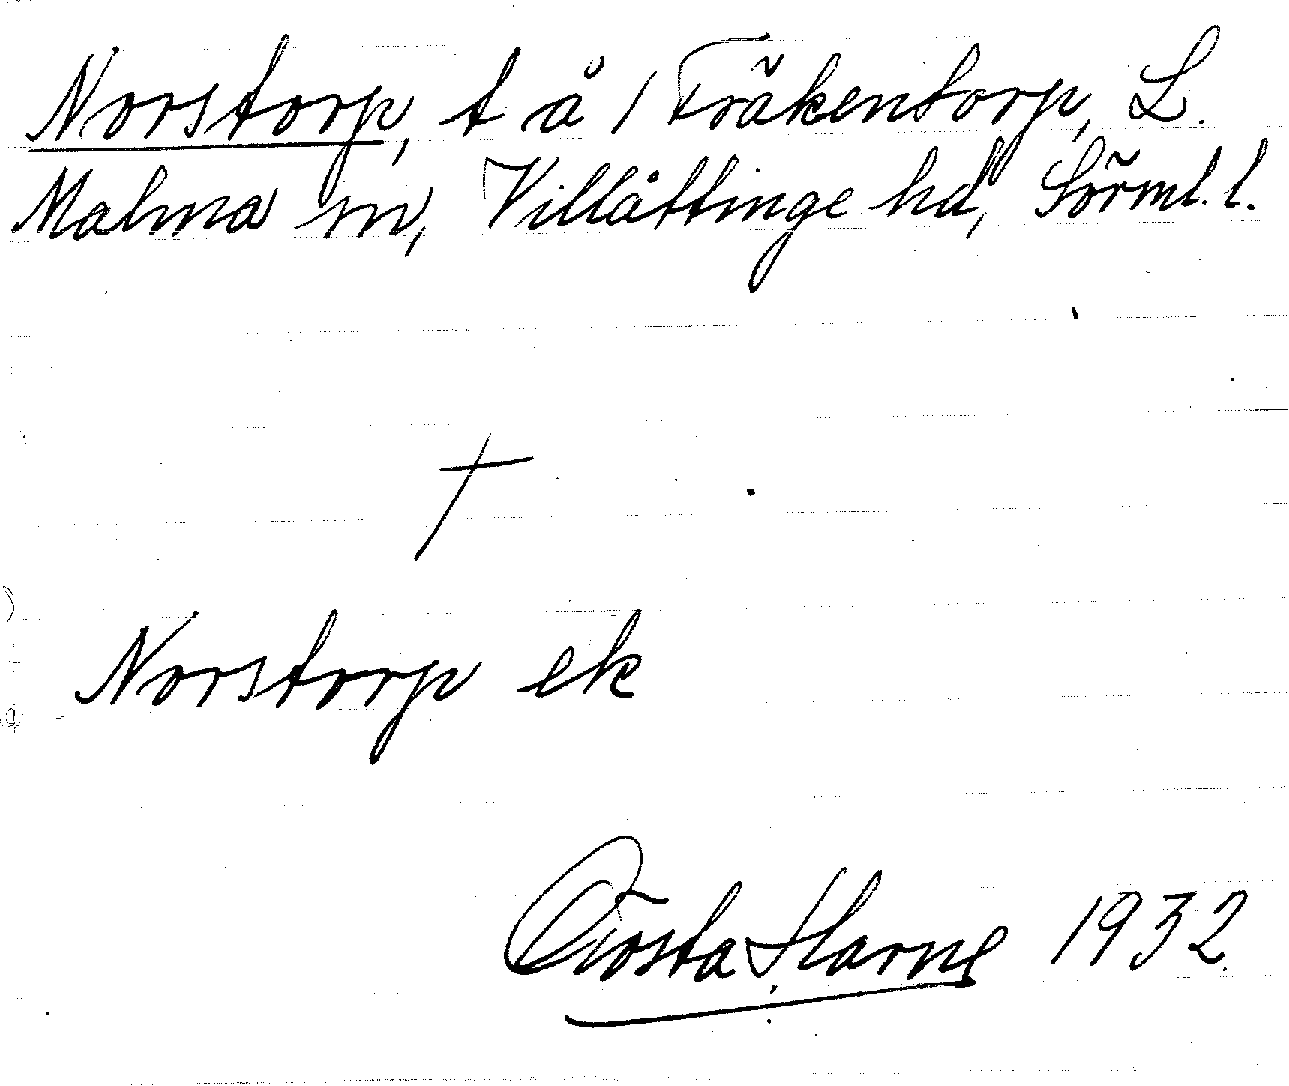 Norstorp, t å / Fräkentorp, L.
Malma sn, Villåttinge hd, Sörml. l.
†
Norstorp ek
Gösta Harne 1932.